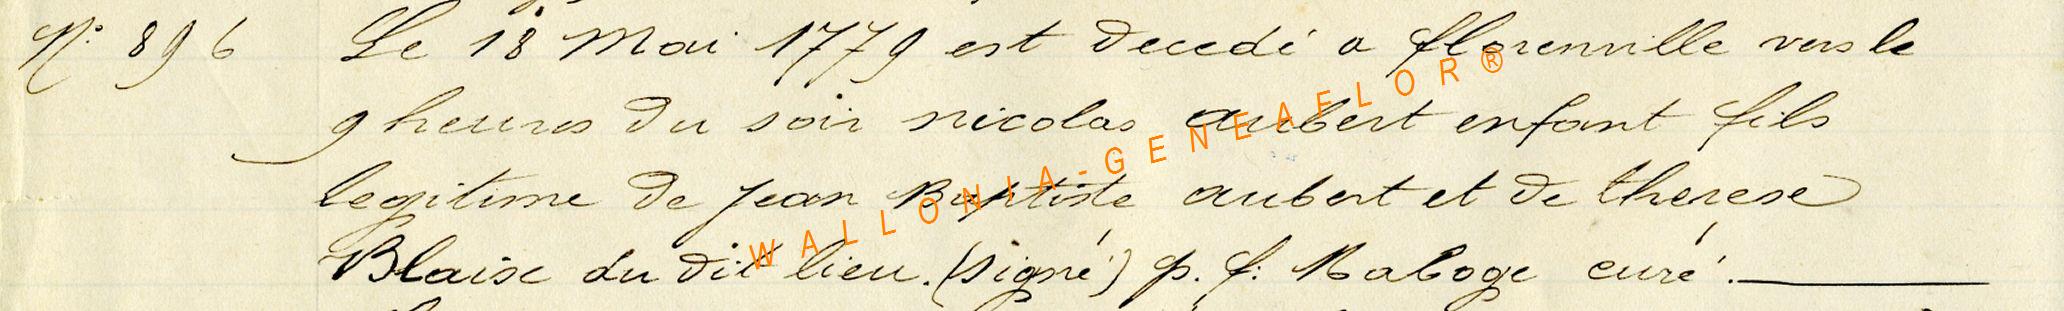 N° 896 Le 18 Mai 1779 est decedé a florenville vers le
9 heures du soir nicolas aubert enfant fils
legitime de jean Baptiste aubert et de therese
Blaise du dit lieu. (signé) p. f: Maboge curé.
WALLONIA-GENEAFLOR®